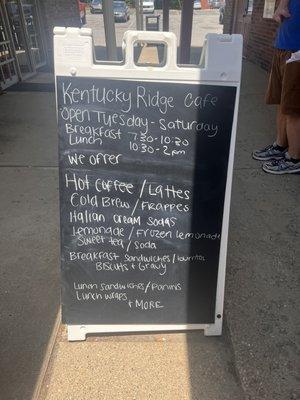 Kentucky Ridge Cafe
Open Tuesday - Saturday
Breakfast 7:30-10:30
Lunch 10:30-2pm
We offer
Hot coffee / Lattes
Cold Brew / Frappes
Italian Cream Sodas
Lemonade / Frozen lemonade
Sweet tea / Soda
Breakfast Sandwiches / burritos
Biscuits + Gravy
Lunch Sandwiches / Paninis
Lunch wraps
+ MORE